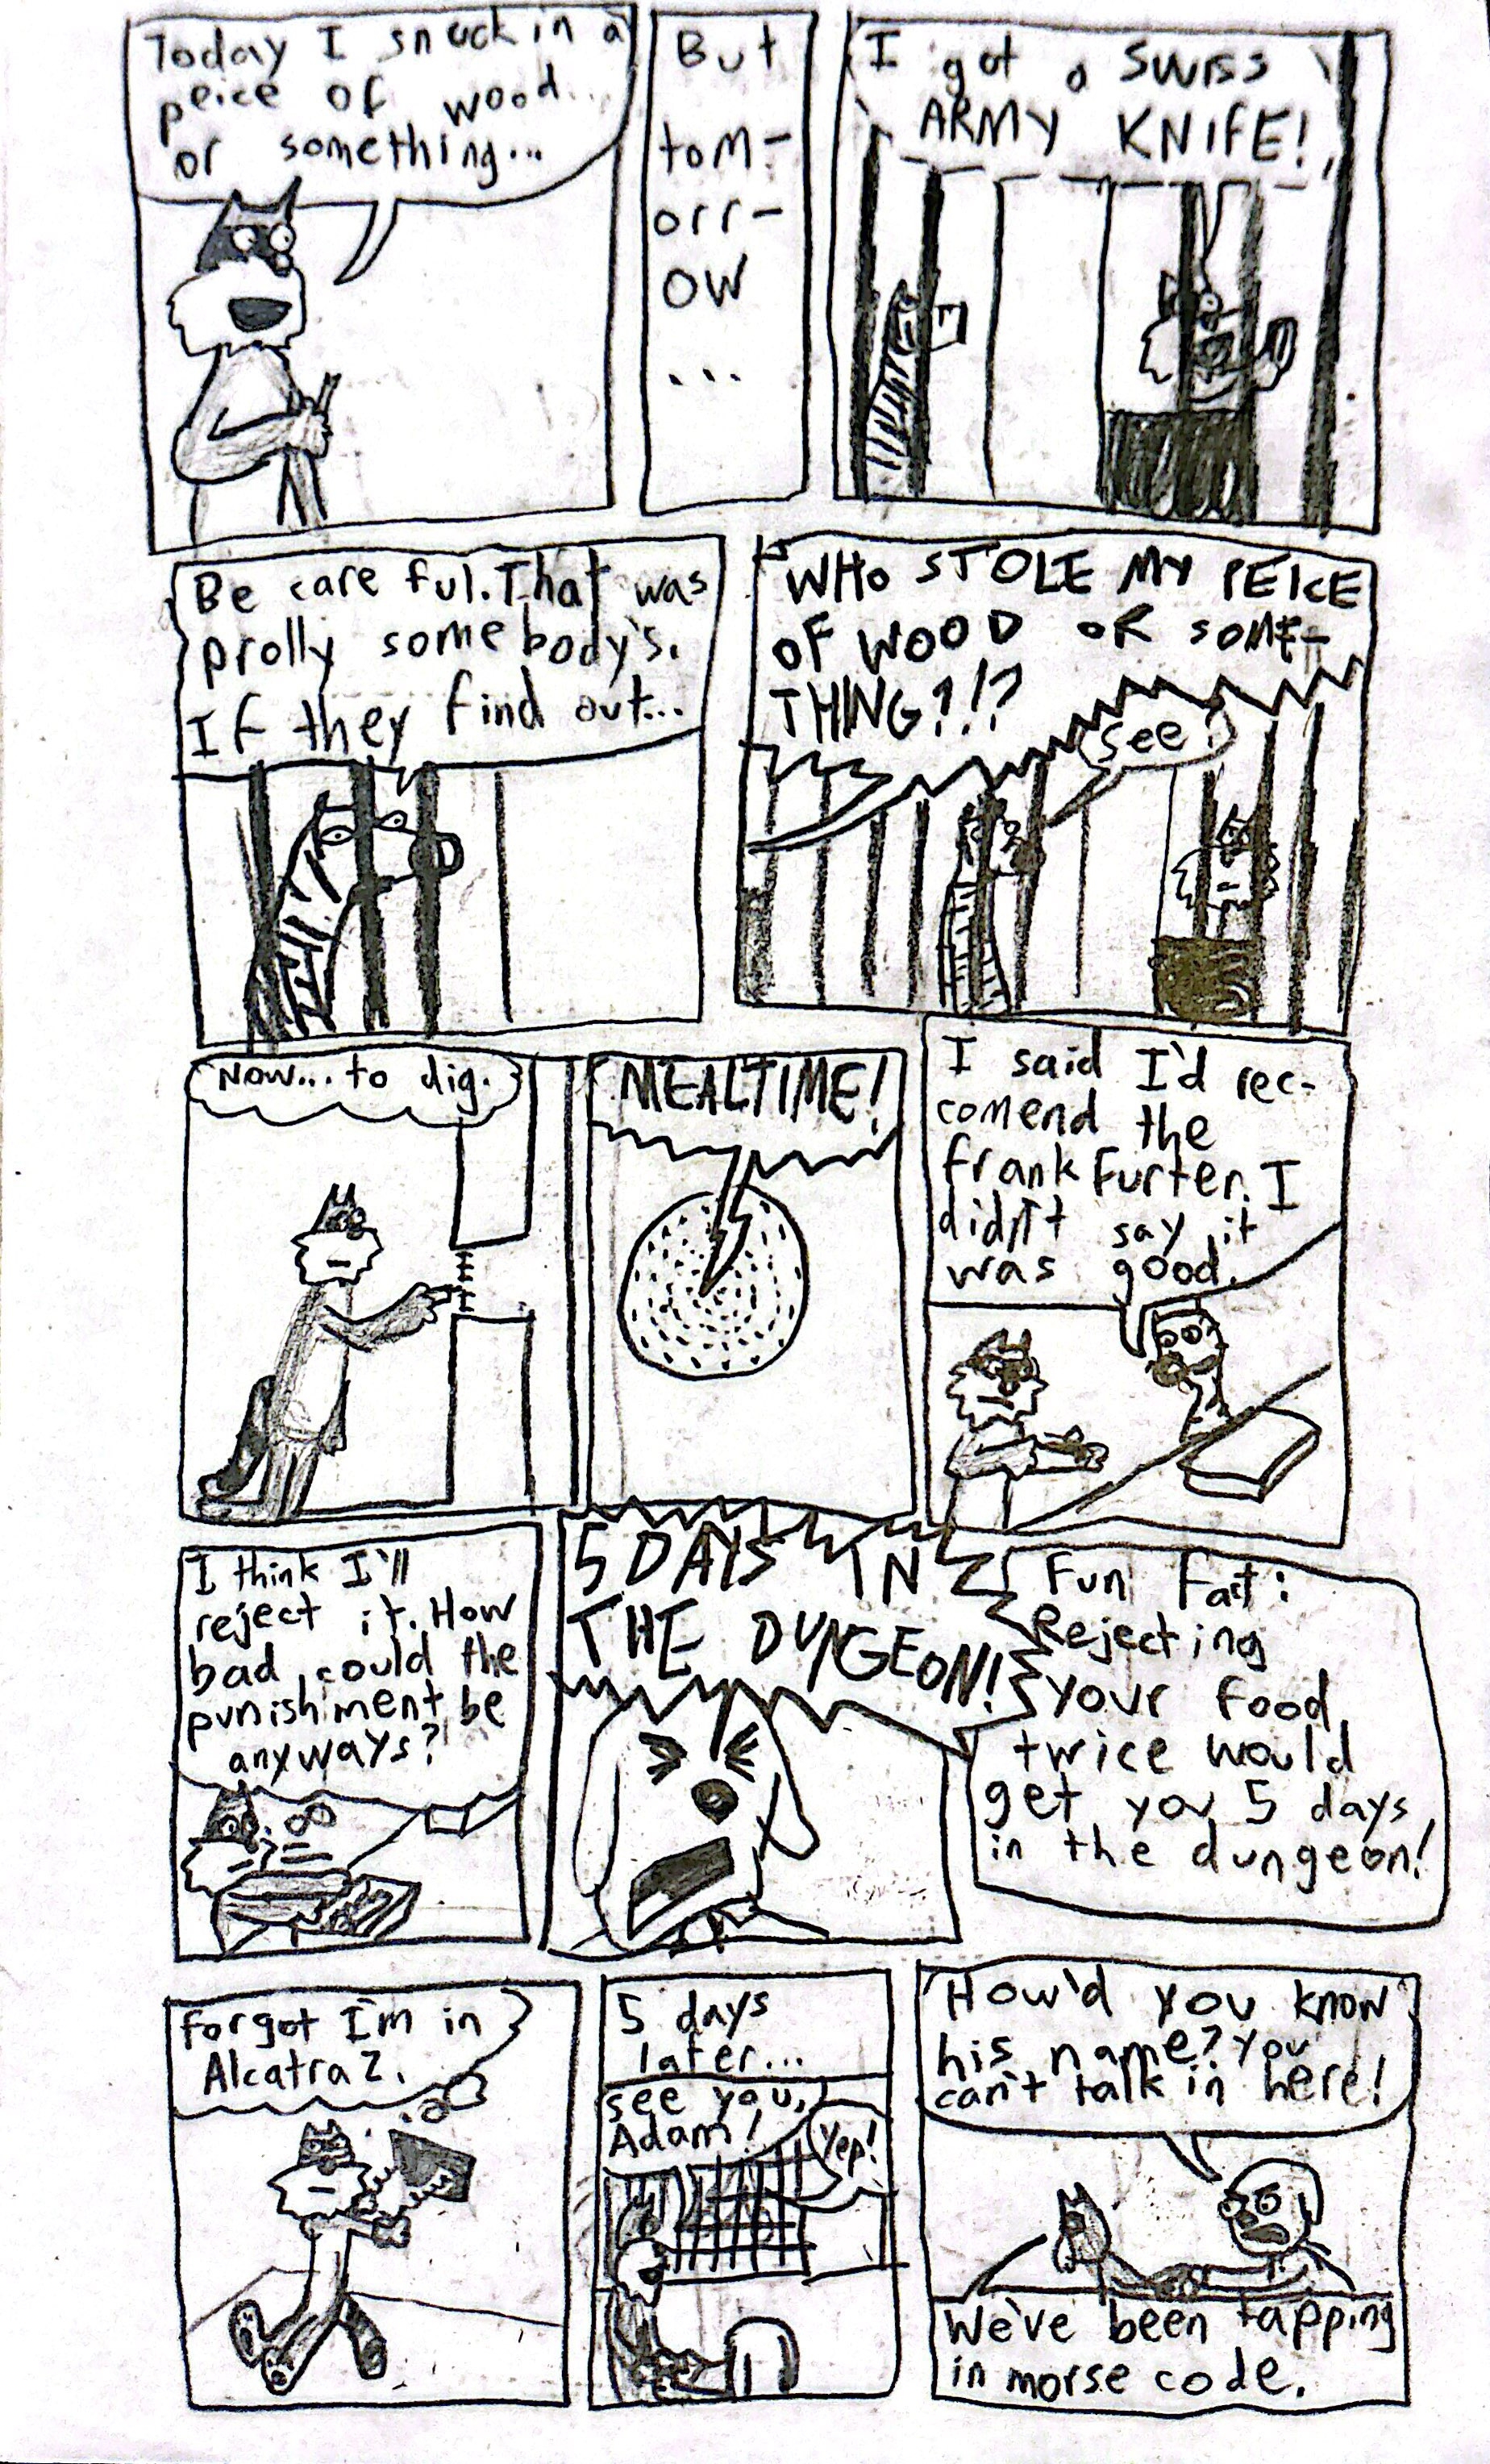 Today I snuck in a
peice of wood...
or something...
But
tom-
orr-
ow
...
I got a swiss
ARMY KNIFE!
Be care ful. That was
prolly somebody's.
If they find out...
WHO STOLE MY PEICE
OF WOOD OR SOME-
THING?!?
see?
Now... to dig.
MEALTIME!
I said I'd rec-
comend the
frankfurter. I
didn't say it
was good.
I think I'll
reject it. How
bad could the
punishment be
anyways?
5 DAYS IN
THE DUNGEON!
Fun fact:
Rejecting
your food
twice would
get you 5 days
in the dungeon!
Forgot I'm in
Alcatraz.
5 days
later...
see you,
Adam!
Yep!
How'd you know
his name? You
can't talk in here!
We've been tapping
in morse code.